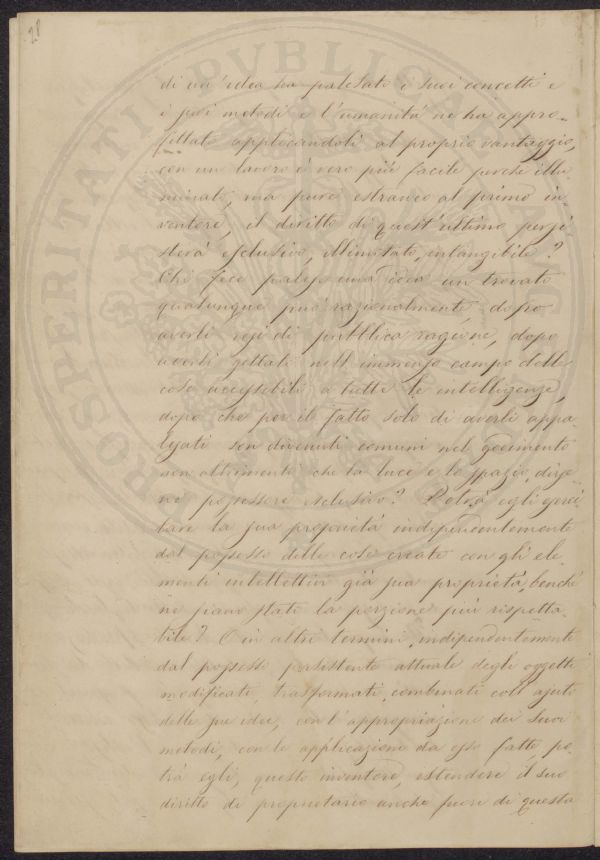 28
di un'idea ha palesato i suoi concetti e
i suoi metodi e l'umanità ne ha appro-
fittato applicandoli al proprio vantaggio,
con un lavoro è vero più facile perché illu
minato, ma pure estraneo al primo in-
ventore, il diritto di quest'ultimo persi
sterà esclusivo, illimitato, intangibile?
Chi fece palese una idea un trovato
qualunque può razionalmente, dopo
averli resi di pubblica ragione, dopo
averli gettati nell'immenso campo delle
cose accessibili a tutte le intelligenze,
dopo che per il fatto solo di averli appa
lesati son divenuti comuni nel godimento
non altrimenti che la luce e lo spazio, dirse
ne possessore esclusivo? Potrà egli eserci
tare la sua proprietà indipendentemente
dal possesso delle cose create con gli ele
menti intellettivi già sua proprietà, benché
ne siano state la porzione più rispetta-
bile? O in altri termini, indipendentemente
dal possesso persistente attuale degli oggetti
modificati, trasformati, combinati coll'ajuto
delle sue idee, con l'appropriazione dei suoi
metodi, con le applicazioni da esso fatte, po
trà egli, questo inventore, estendere il suo
diritto di proprietario anche fuori di questa
PROSPERITATI PVBLICAE